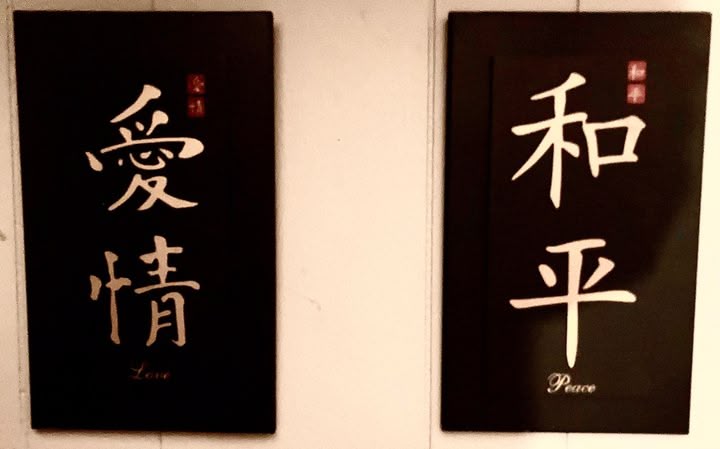 愛
情
Love
和
平
和
平
Peace